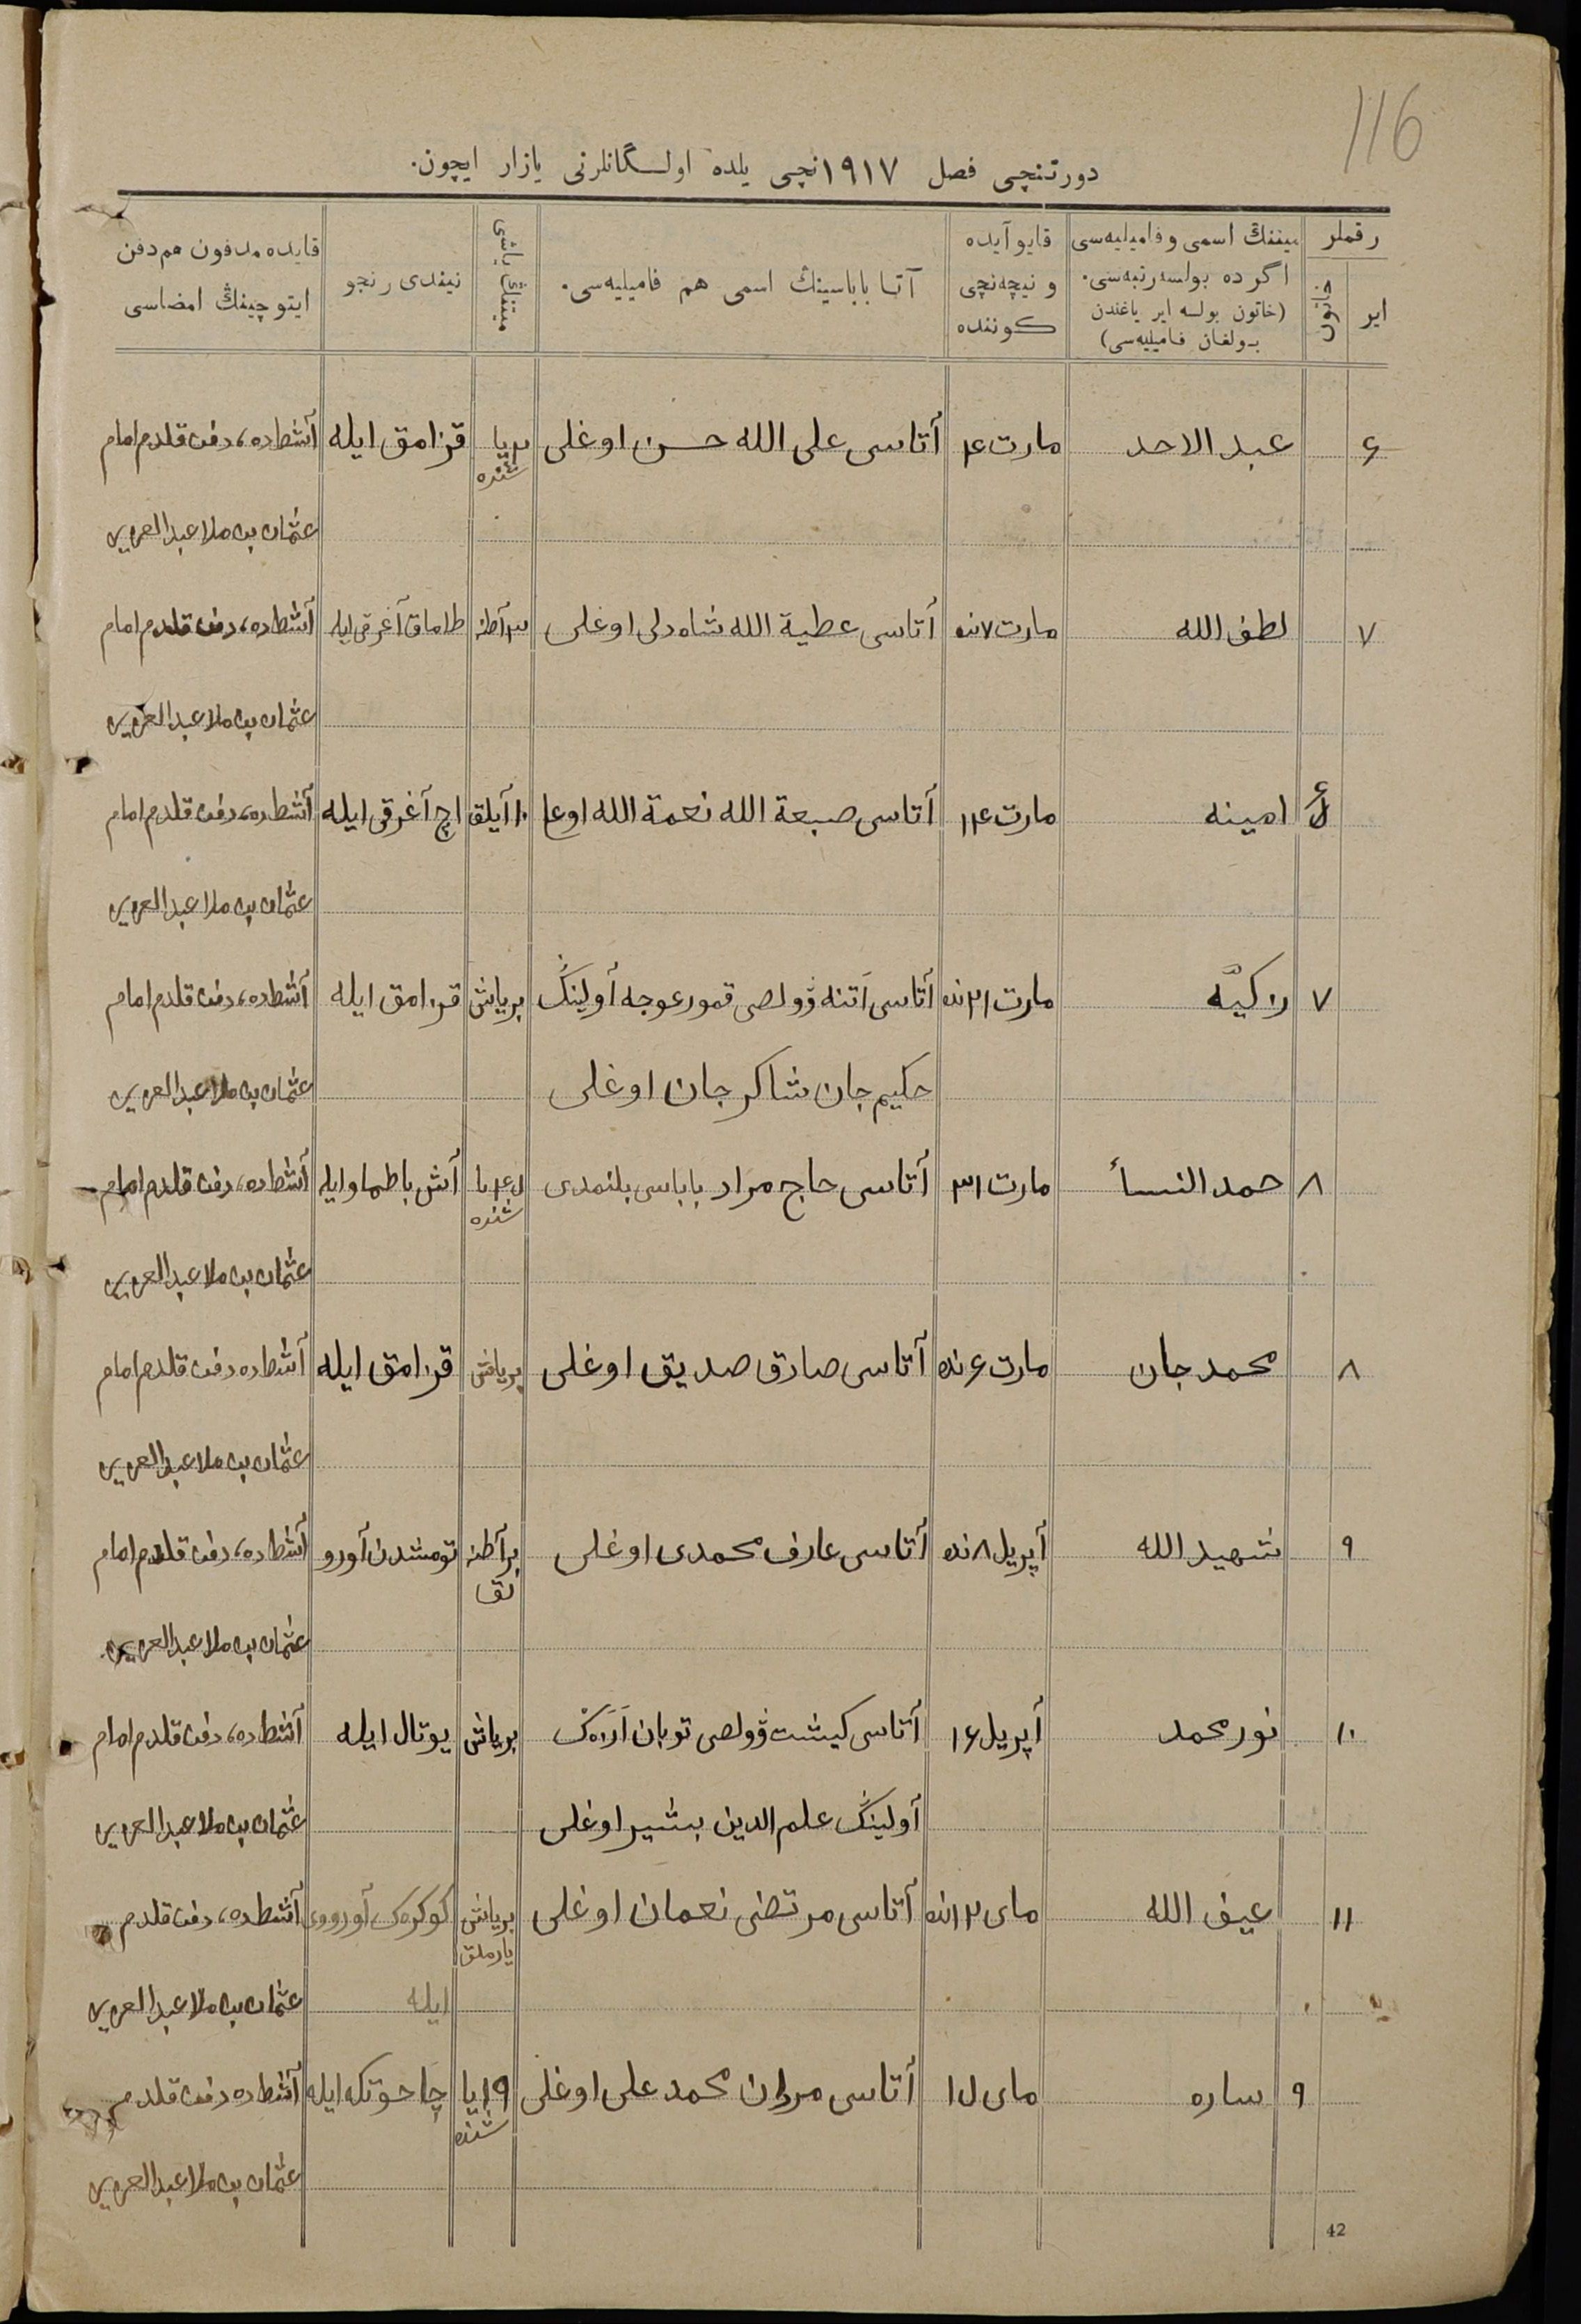 116
دورتنچی فصل ۱۹۱۷نچی یلده اولـگانلرنی یازار ایچون.
رقملر
ایر
خاتون
میتنڭ اسمی و فامیلیه‌سی اگر ده بولسه رتبه‌سی.
(خاتون بولسه ایر یاغندن بـولغان فامیلیه‌سی)
قایو آیده و نیچه‌نچی کوننده
آتـا باباسینڭ اسمی هم فامیلیه‌سی.
میتنڭ یاشی
نیندی رنجو
قایده مدفون هم دفن ایتو چینڭ امضاسی
۶ عبد الاحد مارت ۴ آتاسی علی الله حسن اوغلی ۳ یا شنده قزامق ایله آشطاده، دفن قلدم امام
عثمان بن ملا عبد العزیز
۷ لطف الله مارت ۷نده آتاسی عطیة الله شاه ولی اوغلی ۳ آطنه طاماق آغرقی ایله آشطاده، دفن قلدم امام
عثمان بن ملا عبد العزیز
۶ امینه مارت ۱۴ آتاسی صبغة الله نعمة الله اوغلی ۱۰ آیلق اچ آغرقی ایله آشطاده، دفن قلدم امام
عثمان بن ملا عبد العزیز
۷ زاکیّه مارت ۲۱نده آتاسی آتنه ۋولصی قمورغوجه آولینڭ بر یاش قزامق ایله آشطاده، دفن قلدم امام
حکیم جان شاکر جان اوغلی عثمان بن ملا عبد العزیز
۸ حمد النسأ مارت ۳۱ آتاسی حاج مراد باباسی بلنمدی یا شنده آش باطماو ایله آشطاده، دفن قلدم امام
عثمان بن ملا عبد العزیز
۸ محمد جان مارت ۶نده آتاسی صادق صدیق اوغلی بر یاش قزامق ایله آشطاده دفن قلدم امام
عثمان بن ملا عبد العزیز
۹ شهید الله أپریل ۸نده آتاسی عارف محمدی اوغلی بر آطنه لق تومشدن آورو آشطاده، دفن قلدم امام
عثمان بن ملا عبد العزیز
۱۰ نور محمد أپریل ۱۶ آتاسی کیشت ۋولصی توبان أراەک بر یاش یوتال ایله آشطاده، دفن قلدم امام
آولینڭ علم الدین بشیر اوغلی عثمان بن ملا عبد العزیز
۱۱ عیف الله مای ۱۲نده آتاسی مرتضی نعمان اوغلی بر یاش یارملق کوکرەک آورووی آشطاده، دفن قلدم
ایله عثمان بن ملا عبد العزیز
۹ ساره مای ۱۵ آتاسی مردان محمد علی اوغلی ۱۹ یا شنده چاحوتکه ایله آشطاده دفن قلدم
عثمان بن ملا عبد العزیز
42